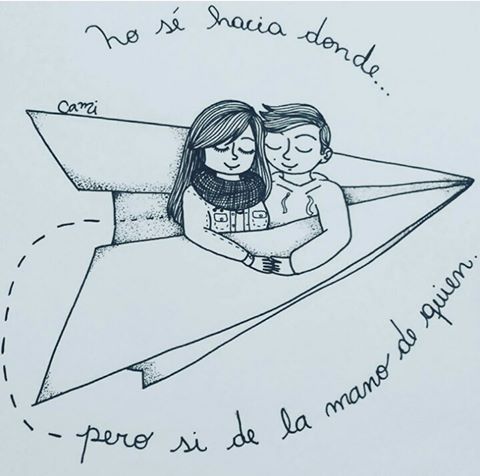 no sé hacia donde...
Cami
pero si de la mano de quien.